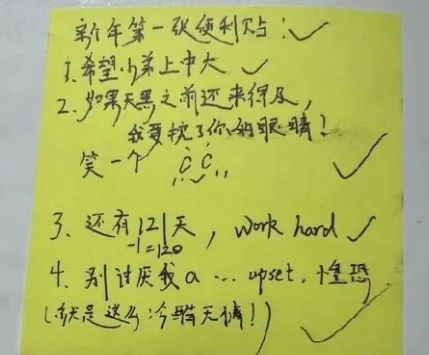 新年第一张便利贴：✓
1. 希望小弟上中大 ✓
2. 如果天黑之前还来得及，
我要挖了你的眼睛！
笑一个 ✓
3. 还有121天，work hard ✓
-1=120
4. 别讨厌我a … upset，惶恐
（就是这么冷酷无情！）✓